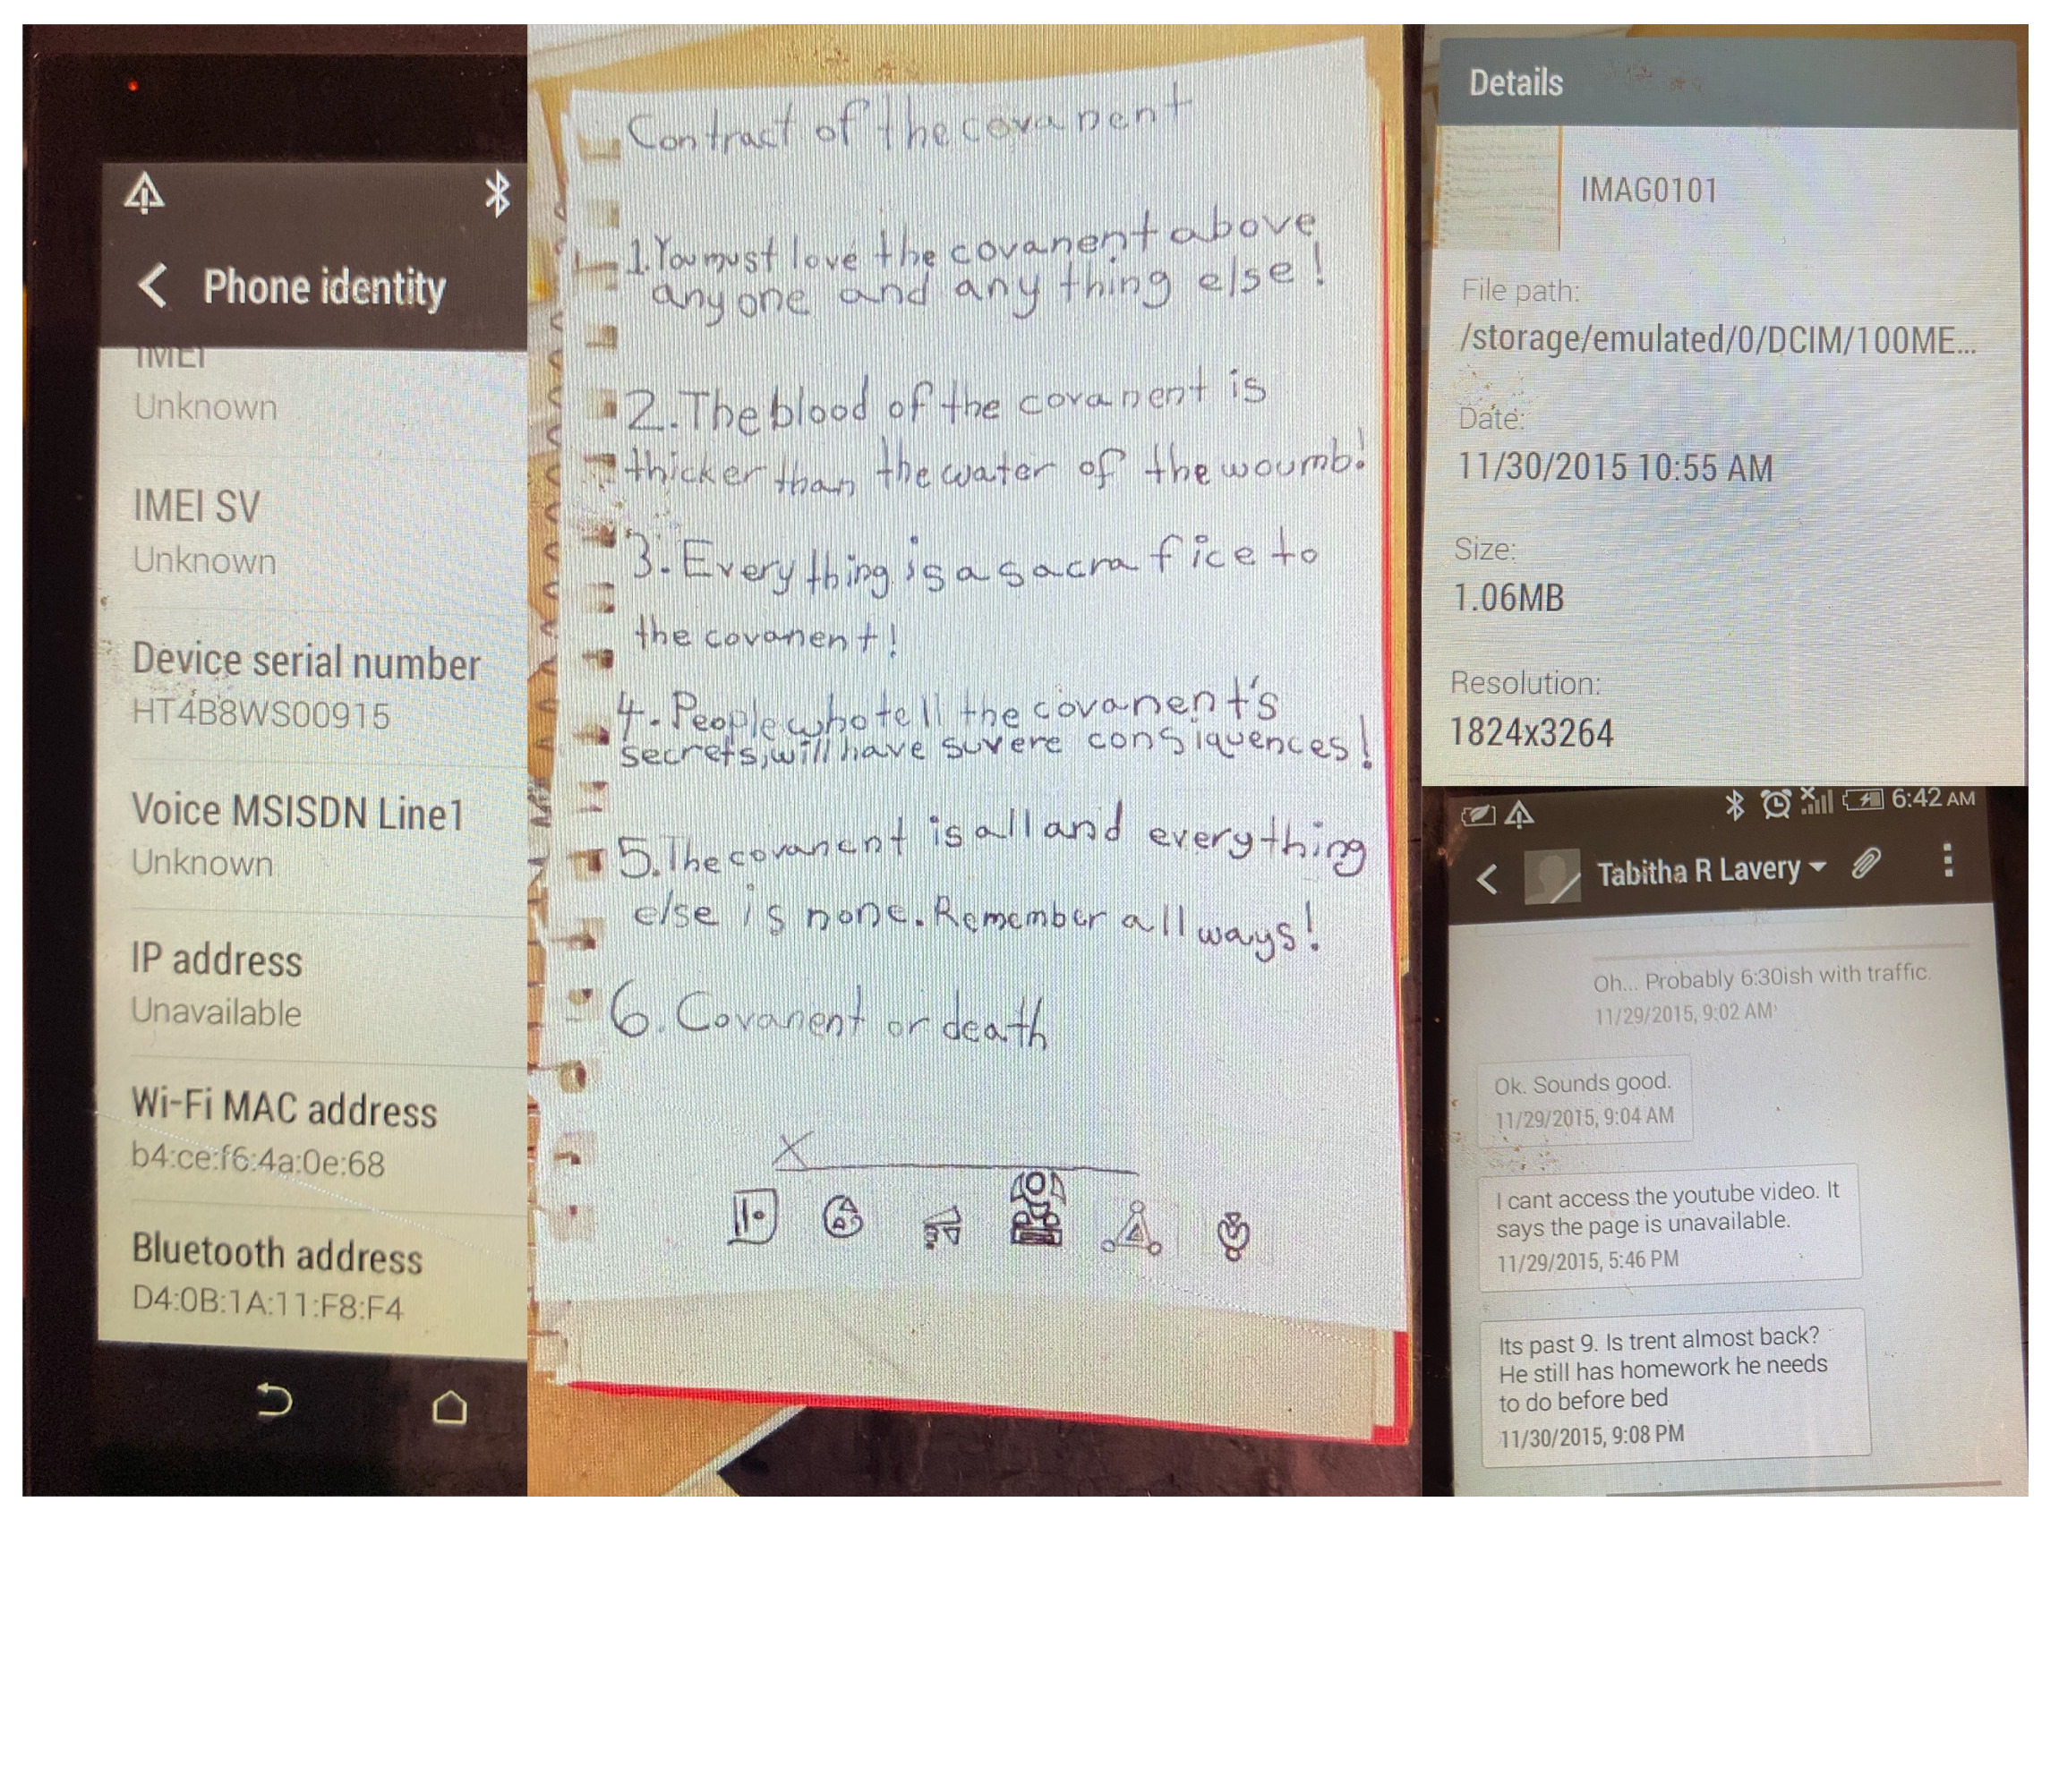 Phone identity
IMEI
Unknown
IMEI SV
Unknown
Device serial number
HT4B8WS00915
Voice MSISDN Line1
Unknown
IP address
Unavailable
Wi-Fi MAC address
b4:ce:f6:4a:0e:68
Bluetooth address
D4:0B:1A:11:F8:F4
Contract of the covanent
1. You must love the covanent above
any one and any thing else!
2. The blood of the covanent is
thicker than the water of the woumb!
3. Every thing is a sacra fice to
the covanent!
4. People who tell the covanent's
secrets, will have suvere consiquences!
5. The covanent is all and everything
else is none. Remember all ways!
6. Covanent or death
X
Details
IMAG0101
File path:
/storage/emulated/0/DCIM/100ME...
Date:
11/30/2015 10:55 AM
Size:
1.06MB
Resolution:
1824x3264
6:42 AM
Tabitha R Lavery
Oh... Probably 6:30ish with traffic.
11/29/2015, 9:02 AM
Ok. Sounds good.
11/29/2015, 9:04 AM
I cant access the youtube video. It
says the page is unavailable.
11/29/2015, 5:46 PM
Its past 9. Is trent almost back?
He still has homework he needs
to do before bed
11/30/2015, 9:08 PM